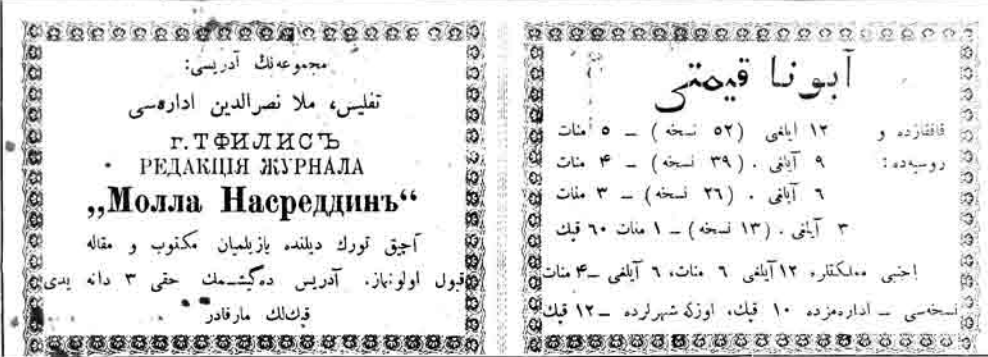 آبونا قیمتی
قافقازده و ۱۲ ایلغی (۵۲ نسخه) ــ ۵ منات
روسیه‌ده: ۹ آیلغی . (۳۹ نسخه) ــ ۴ منات
۶ آیلغی . (۲۶ نسخه) ــ ۳ منات
۳ آیلغی . (۱۳ نسخه) ــ ۱ منات ۶۰ قپك
اجنبی مملکتلره ۱۲ آیلغی ۶ منات، ۶ آیلغی ــ ۴ منات
نسخه‌سی ــ اداره‌مزده ۱۰ قپك، اوزکه شهرلرده ــ ۱۲ قپك
مجموعه‌نڭ آدریسی:
تفلیس، ملا نصرالدین اداره‌سی
г. ТФИЛИСЪ
РЕДАКЦІЯ ЖУРНАЛА
„Молла Насреддинъ“
آچیق تورك دیلنده یازیلمیان مکتوب و مقاله
قبول اولونماز. آدریس ده‌گیشمك حقی ۳ دانه یدی
قپك‌لك مارقادر